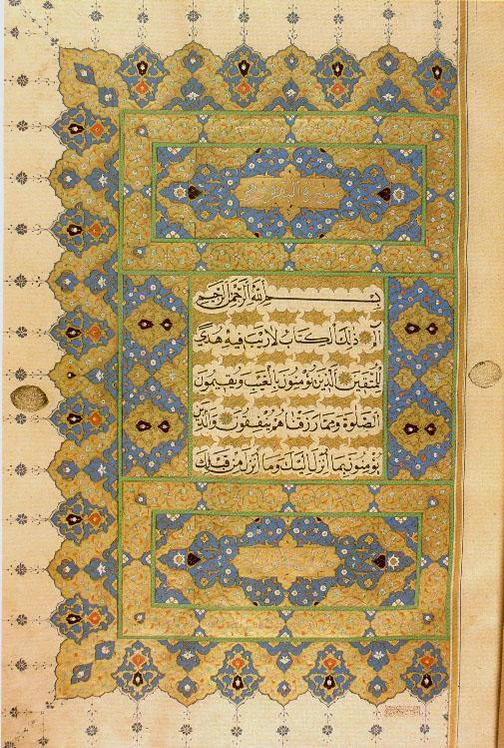 سورة البقرة
بسم الله الرحمن الرحيم
الم ذلك الكتاب لا ريب فيه هدى
للمتقين الذين يؤمنون بالغيب ويقيمون
الصلوة ومما رزقناهم ينفقون والذين
يؤمنون بما أنزل إليك وما أنزل من قبلك